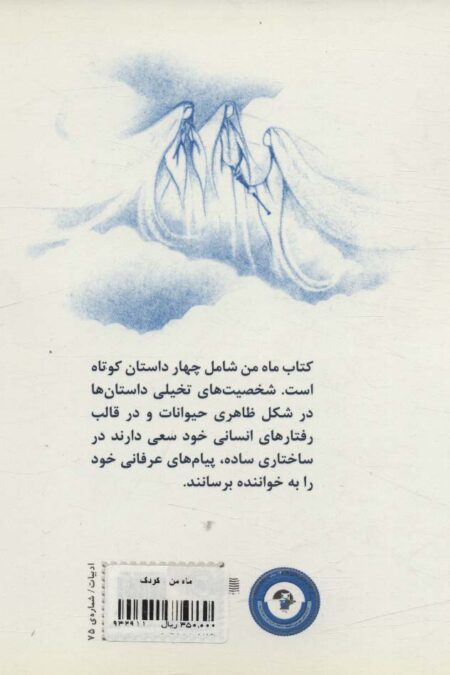 کتاب ماه من شامل چهار داستان کوتاه
است. شخصیت‌های تخیلی داستان‌ها
در شکل ظاهری حیوانات و در قالب
رفتارهای انسانی خود سعی دارند در
ساختاری ساده، پیام‌های عرفانی خود
را به خواننده برسانند.
ادبیات / شماره‌ی ۷۵
ماه من کودک
۹۳۴۹۱۱ ۳۵۰،۰۰۰ ریال